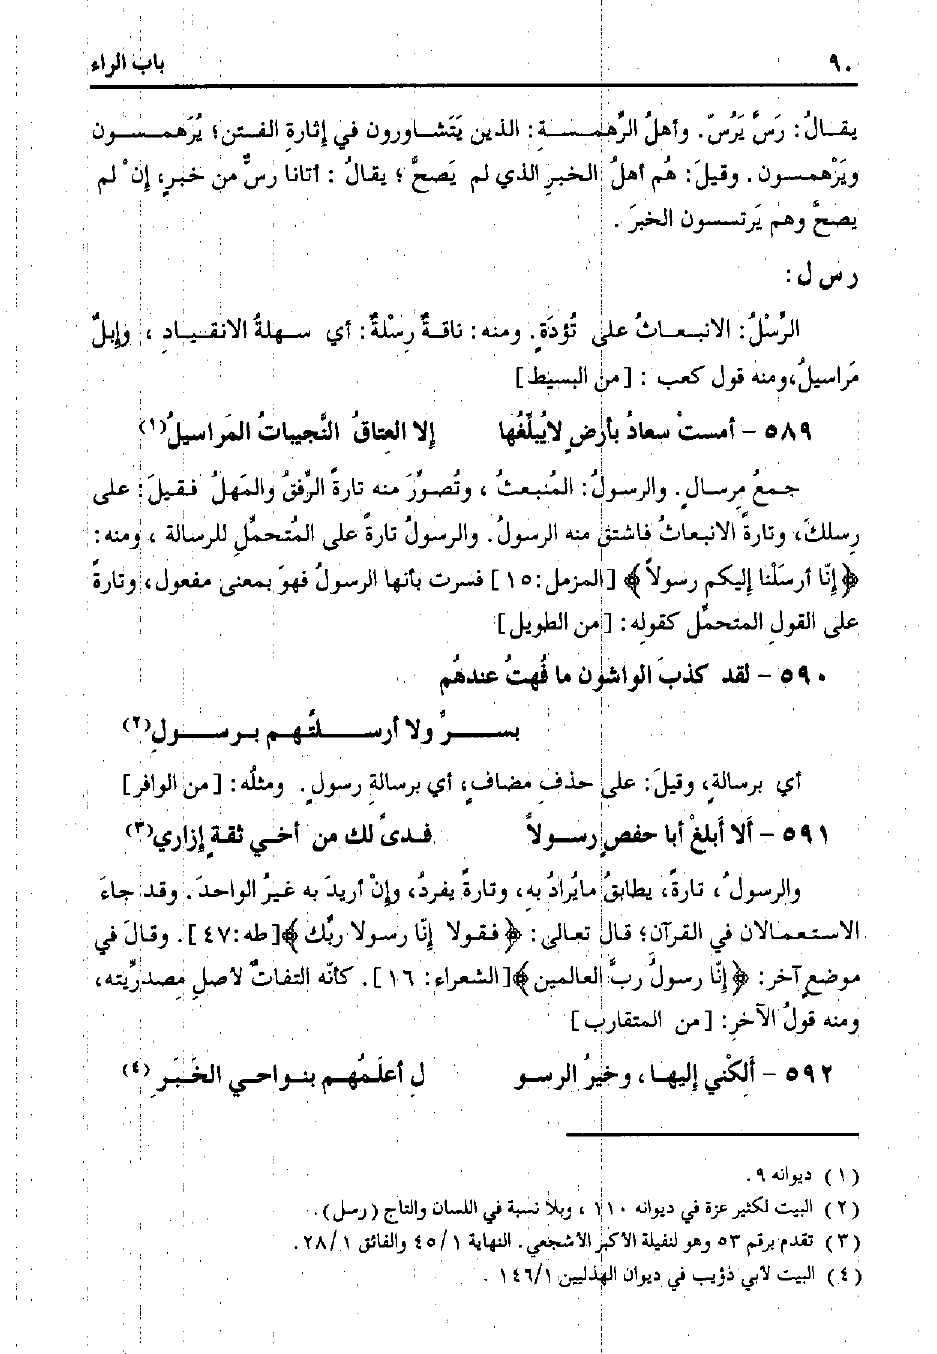 ٩٠ باب الراء
يقالُ: رَسَّ يَرُسّ. وأهلُ الرَّهْمسةِ: الذين يَتَشاورون في إثارةِ الفتنِ؛ يُرَهمسون
ويَرْهمسون. وقيلَ: هُم أهلُ الخبرِ الذي لم يَصحَّ؛ يقالُ: أتانا رسٌّ من خبرٍ، إنْ لم
يصحَّ وهم يَرتسسون الخبرَ.
ر س ل:
الرِّسْلُ: الانبعاثُ على تُؤدَةٍ. ومنه: ناقةٌ رِسْلةٌ: أي سهلةُ الانقيادِ، وإبلٌ
مَراسيلُ، ومنه قول كعب: [من البسيط]
٥٨٩ - أمستْ سعادُ بأرضٍ لايُبلّغُها إلا العتاقُ النَّجيباتُ المَراسيلُ(١)
جمعُ مِرسال. والرسولُ: المُنبعثُ، وتُصوِّرَ منه تارةً الرِّفقُ والمَهلُ فقيلَ: على
رِسلكَ، وتارةً الانبعاثُ فاشتق منه الرسولُ. والرسولُ تارةً على المُتحمِّلِ للرسالة، ومنه:
﴿إنّا أرسَلنا إليكم رسولاً﴾ [المزمل: ١٥] فسرت بأنها الرسولُ فهوَ بمعنى مفعول، وتارةً
على القول المتحمَّل كقولِه: [من الطويل]
٥٩٠ - لقد كذبَ الواشون ما فُهتُ عندهُم
بسرٍّ ولا أرسلتُهم برسولِ(٢)
أي برسالةٍ، وقيلَ: على حذفِ مضافٍ، أي برسالةِ رسولٍ. ومثلُه: [من الوافر]
٥٩١ - أَلا أَبلغْ أبا حفصٍ رسولاً فدىً لك من أخي ثقةٍ إزاري(٣)
والرسولُ، تارةً، يطابقُ مايُرادُ به، وتارةً يفردُ، وإنْ أريدَ به غيرُ الواحدَ. وقد جاءَ
الاستعمالان في القرآن؛ قال تعالى: ﴿فقولا إنّا رسولا ربِّك﴾ [طه: ٤٧]. وقالَ في
موضعٍ آخر: ﴿إنّا رسولُ ربِّ العالمين﴾ [الشعراء: ١٦]. كأنّه التفاتٌ لأصلِ مصدريّته،
ومنه قولُ الآخرِ: [من المتقارب]
٥٩٢ - أَلِكْني إليها، وخيرُ الرسو لِ أعلَمُهم بنواحي الخَبَرِ(٤)
(١) ديوانه ٩.
(٢) البيت لكثير عزة في ديوانه ١١٠، وبلا نسبة في اللسان والتاج (رسل).
(٣) تقدم برقم ٥٣ وهو لنفيلة الأكبر الأشجعي. النهاية ٤٥/١ والفائق ٢٨/١.
(٤) البيت لأبي ذؤيب في ديوان الهذليين ١٤٦/١.